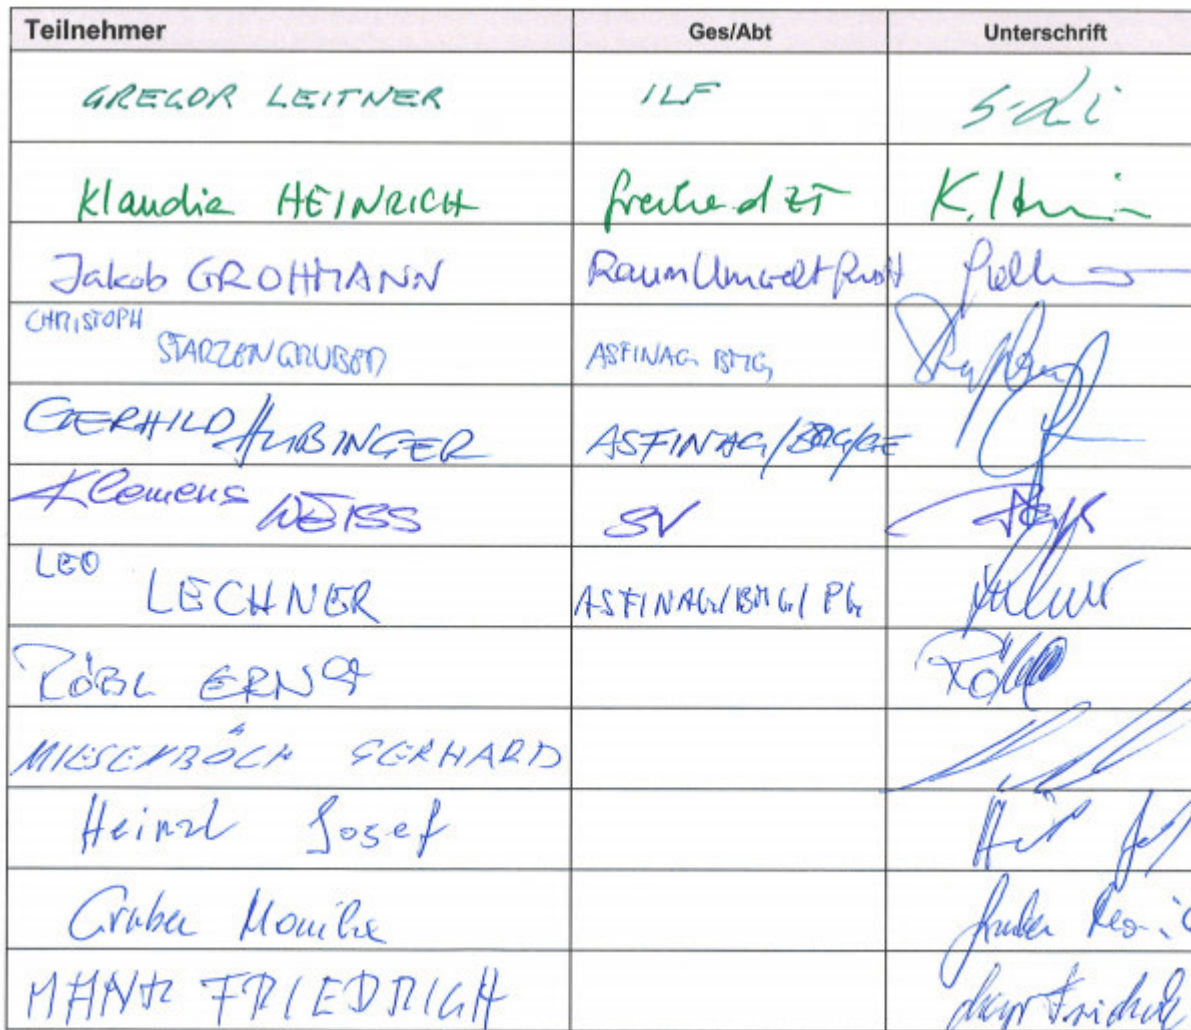 Teilnehmer Ges/Abt Unterschrift
GREGOR LEITNER ILF
Klaudia HEINRICH K. H
Jakob GROHMANN RaumUmwelt
CHRISTOPH
STARZENGRUBER ASFINAG BMG
GERHILD HUBINGER ASFINAG/BMG/GE
Klemens WEISS SV
LEO
LECHNER ASFINAG/BMG/PG
RÖBL ERNST Röbl
MIESENBÖCK GERHARD
Heinzl Josef
Gruber Monika Gruber Monic
FRIEDRICH